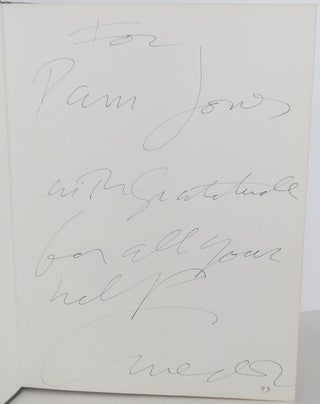 For
Pam Jones
with gratitude
for all your
help